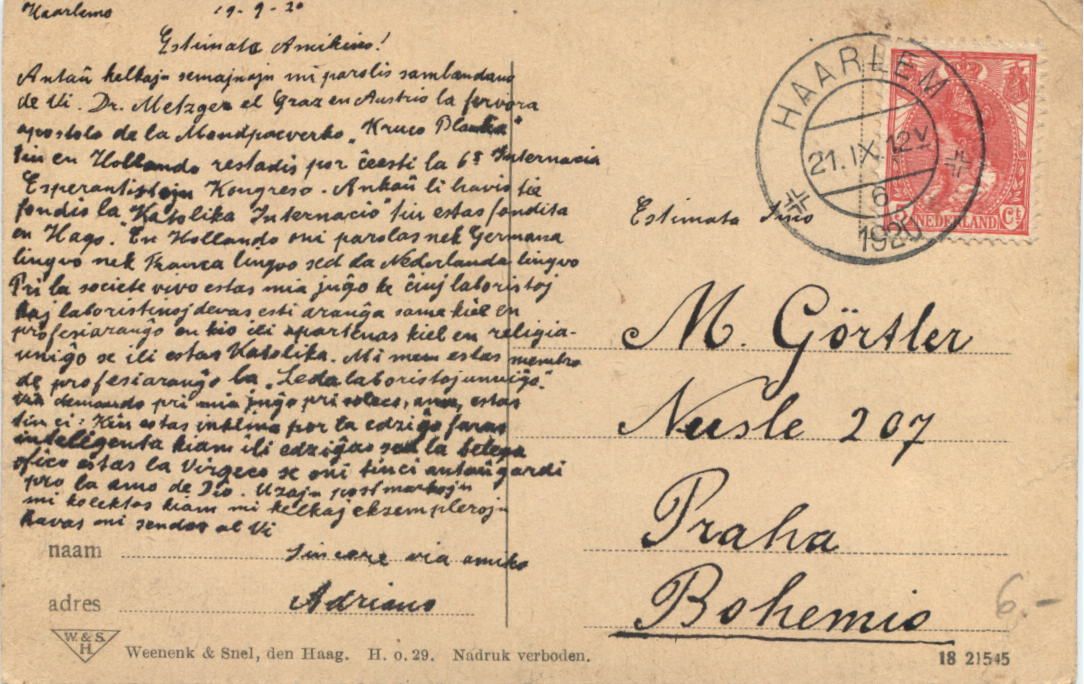 Haarlemo 19-9-20
Estimata Amikino!
Antaŭ kelkaj semajnoj mi parolis samlandano
de Vi. Dr. Metzger el Graz en Austrio la fervora
apostolo de la Mondpacverko „Kruco Blanka"
tiu en Hollando restadis por ĉeesti la 6ª Internacia
Esperantistoju Kongreso. Ankaŭ li havis tie
fondis la „Katolika Internacio" tiu estas fondita
en Hago. En Hollando oni parolas nek Germana
lingvo nek Franca lingvo sed la Nederlanda lingvo
Pri la societe vivo estas mia juĝo ke ĉiuj laboristoj
kaj laboristinoj devas esti aranĝa same kiel en
profesiaranĝo en kio ili apartenas kiel en religia-
uniĝo se ili estas Katolika. Mi mem estas membro
de profesiaranĝo la „Leda laboristoj unuiĝo".
via demando pri mia juĝo pri estas
tiu ci: Kiu estas por la edziĝo faras
inteligenta kiam ili edziĝas sed la belega
ofico estas la Virgeco se oni tinci antaŭgardi
pro la amo de Dio. Uzaju postmarkoju
mi kolektas kiam mi kelkaj eksempleroju
havas mi sendos al Vi
Sincere via amiko
Adriano
naam
adres
W. & S.
H.
Weenenk & Snel, den Haag. H. o. 29. Nadruk verboden.
HAARLEM
21.IX.12V
6
1920
5 NEDERLAND Ct
Estimata Sino
M. Görtler
Nusle 207
Praha
Bohemio
6.-
18 21545